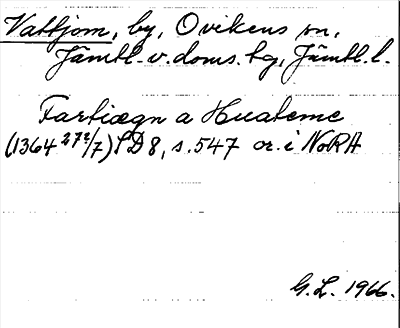 Vattjom, by, Ovikens sn,
Jämtl. v. doms. tg, Jämtl. l.
Fartiægn a Huateme
(1364 27/7) SD 8, s. 547 or. i NoRA
G.L. 1966.